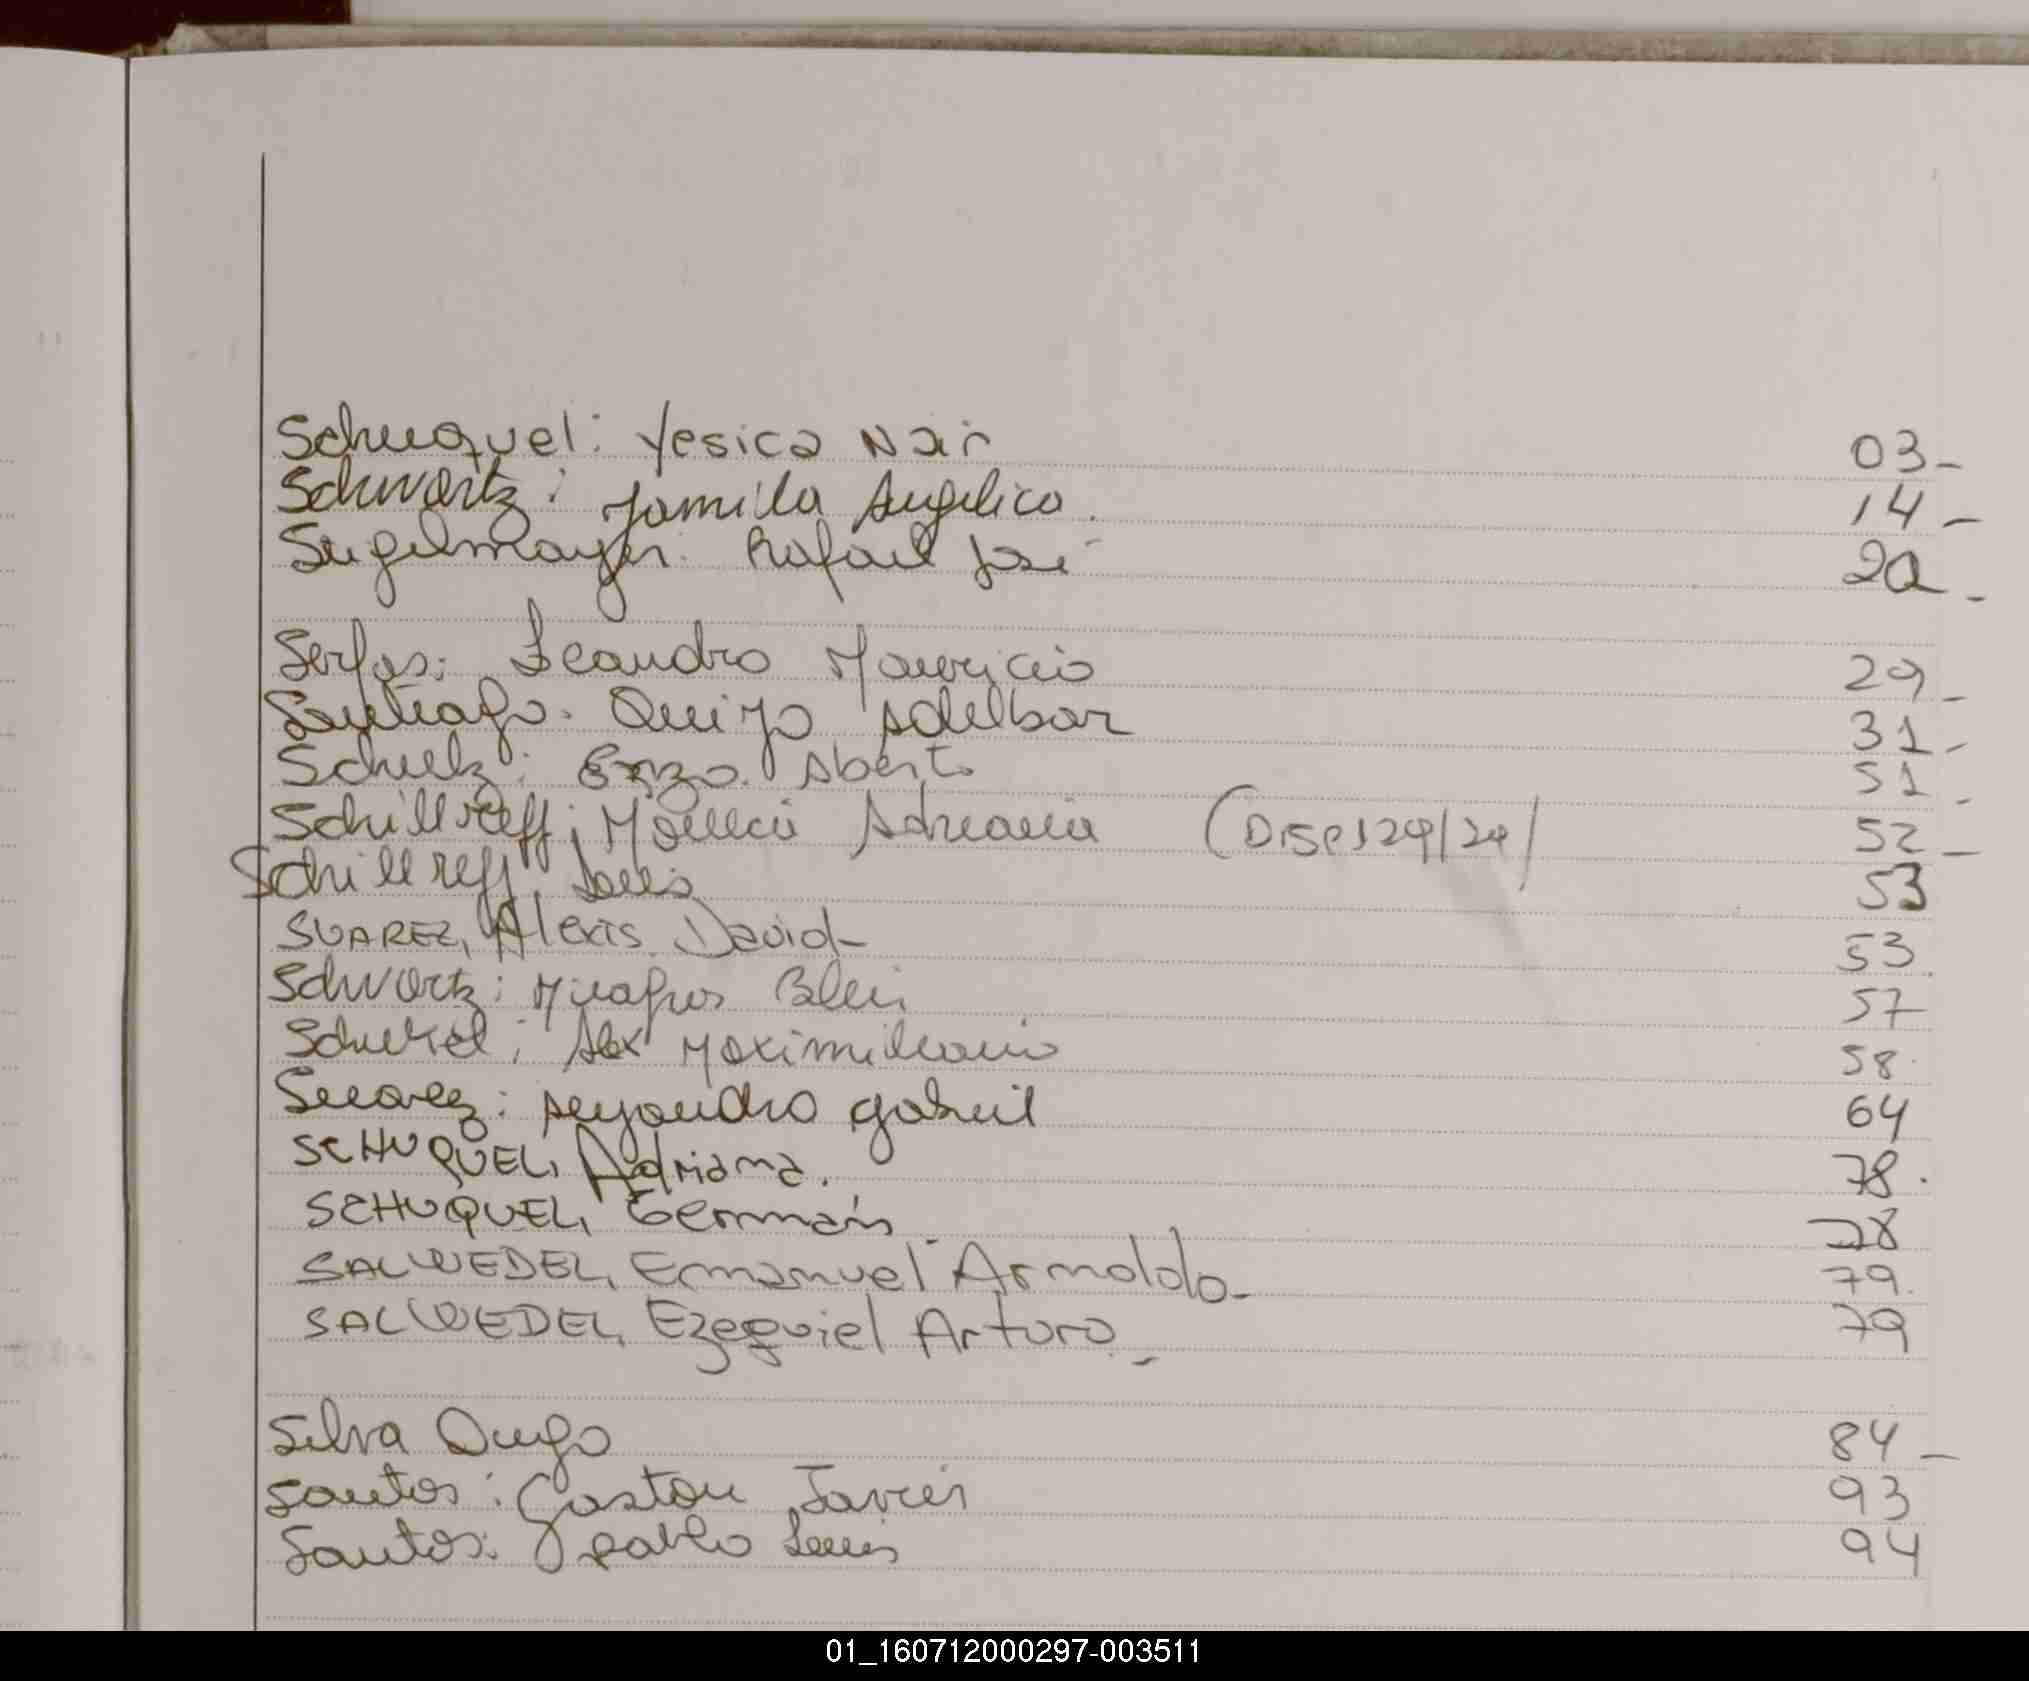 Schuquel: Yesica Nair 03-
Schwartz: Jamilla Angelica. 14-
Seigelmayer: Rafael José 20-
Serfas: Leandro Mauricio 29-
Santiago: Adelbar 31-
Schultz: Enzo Alberto 51-
Schillreff: Mónica Adriana (Disp 129/24/ 52-
Schillreff, Luis 53
SUAREZ, Alexis David- 53
Schvartz: Milagros Belen 57
Schukel: Alex Maximiliano 58.
Suarez: Alejandro Gabriel 64
SCHUQUEL, Adriana. 78.
SCHUQUEL, Germán 78
SALWEDEL, Emanuel Arnoldo- 79.
SALWEDEL, Ezequiel Arturo.- 79
Silva Hugo 84-
Santos: Gaston Javier 93
Santos: Pablo Luis 94
01_160712000297-003511